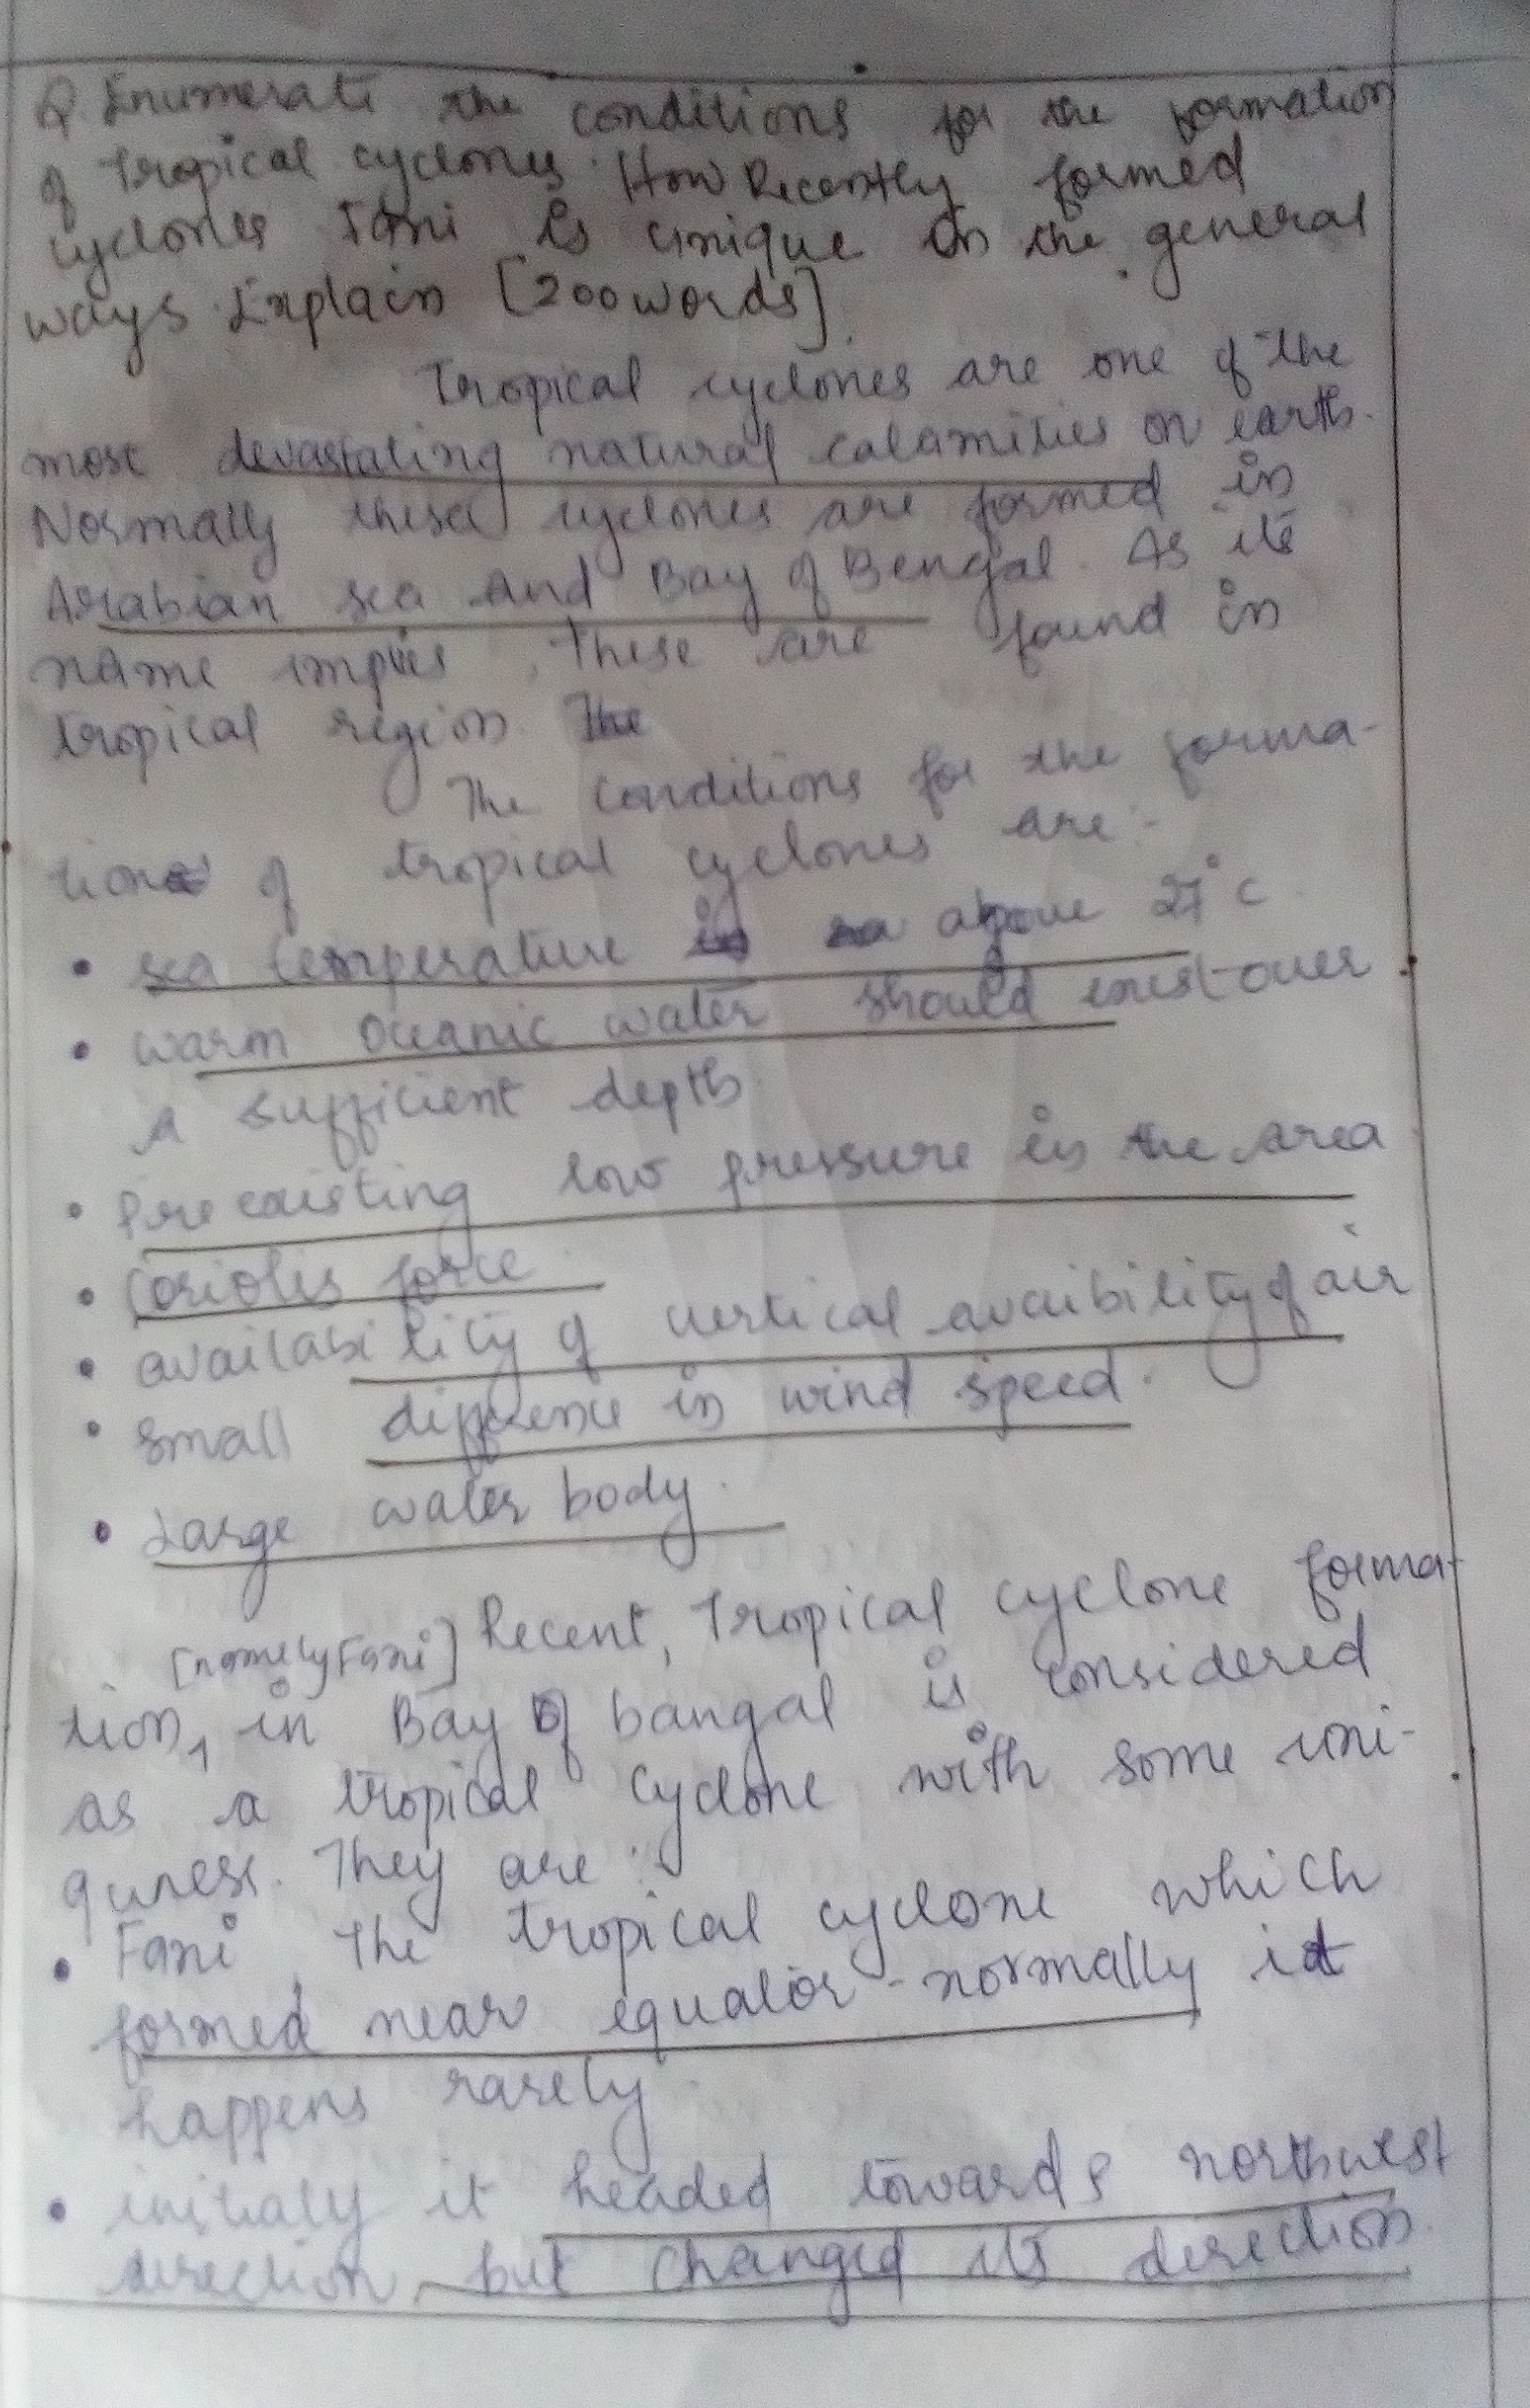 Q. Enumerate the conditions for the formation
of Tropical cyclones. How Recently formed
cyclones Fani is unique in the general
ways. Explain [200 words].
Tropical cyclones are one of the
most devastating natural calamities on earth.
Normally these cyclones are formed in
Arabian sea and Bay of Bengal. As its
name implies, these are found in
tropical region. The
The conditions for the forma-
tion of tropical cyclones are :-
• sea temperature is above 27°c.
• warm oceanic water should exist over
a sufficient depth.
• Pre existing low pressure in the area
• Coriolis force.
• availability of vertical avaibility of air
• small difference in wind speed.
• Large water body.
Recent, Tropical cyclone forma-
[namely Fani]
tion, in Bay of bangal is considered
as a tropical cyclone with some uni-
quness. They are :-
• Fani, The tropical cyclone which
formed near equator - normally it
happens rarely.
• initialy it headed towards northwest
direction, but changed its direction.